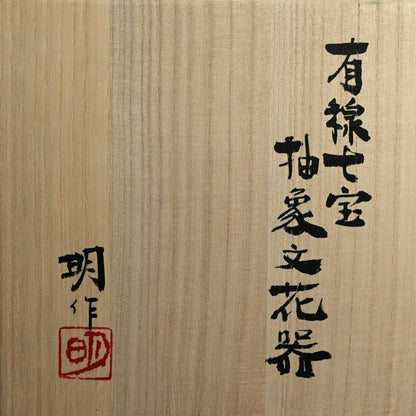 有線七宝
抽象文花器
明作
明